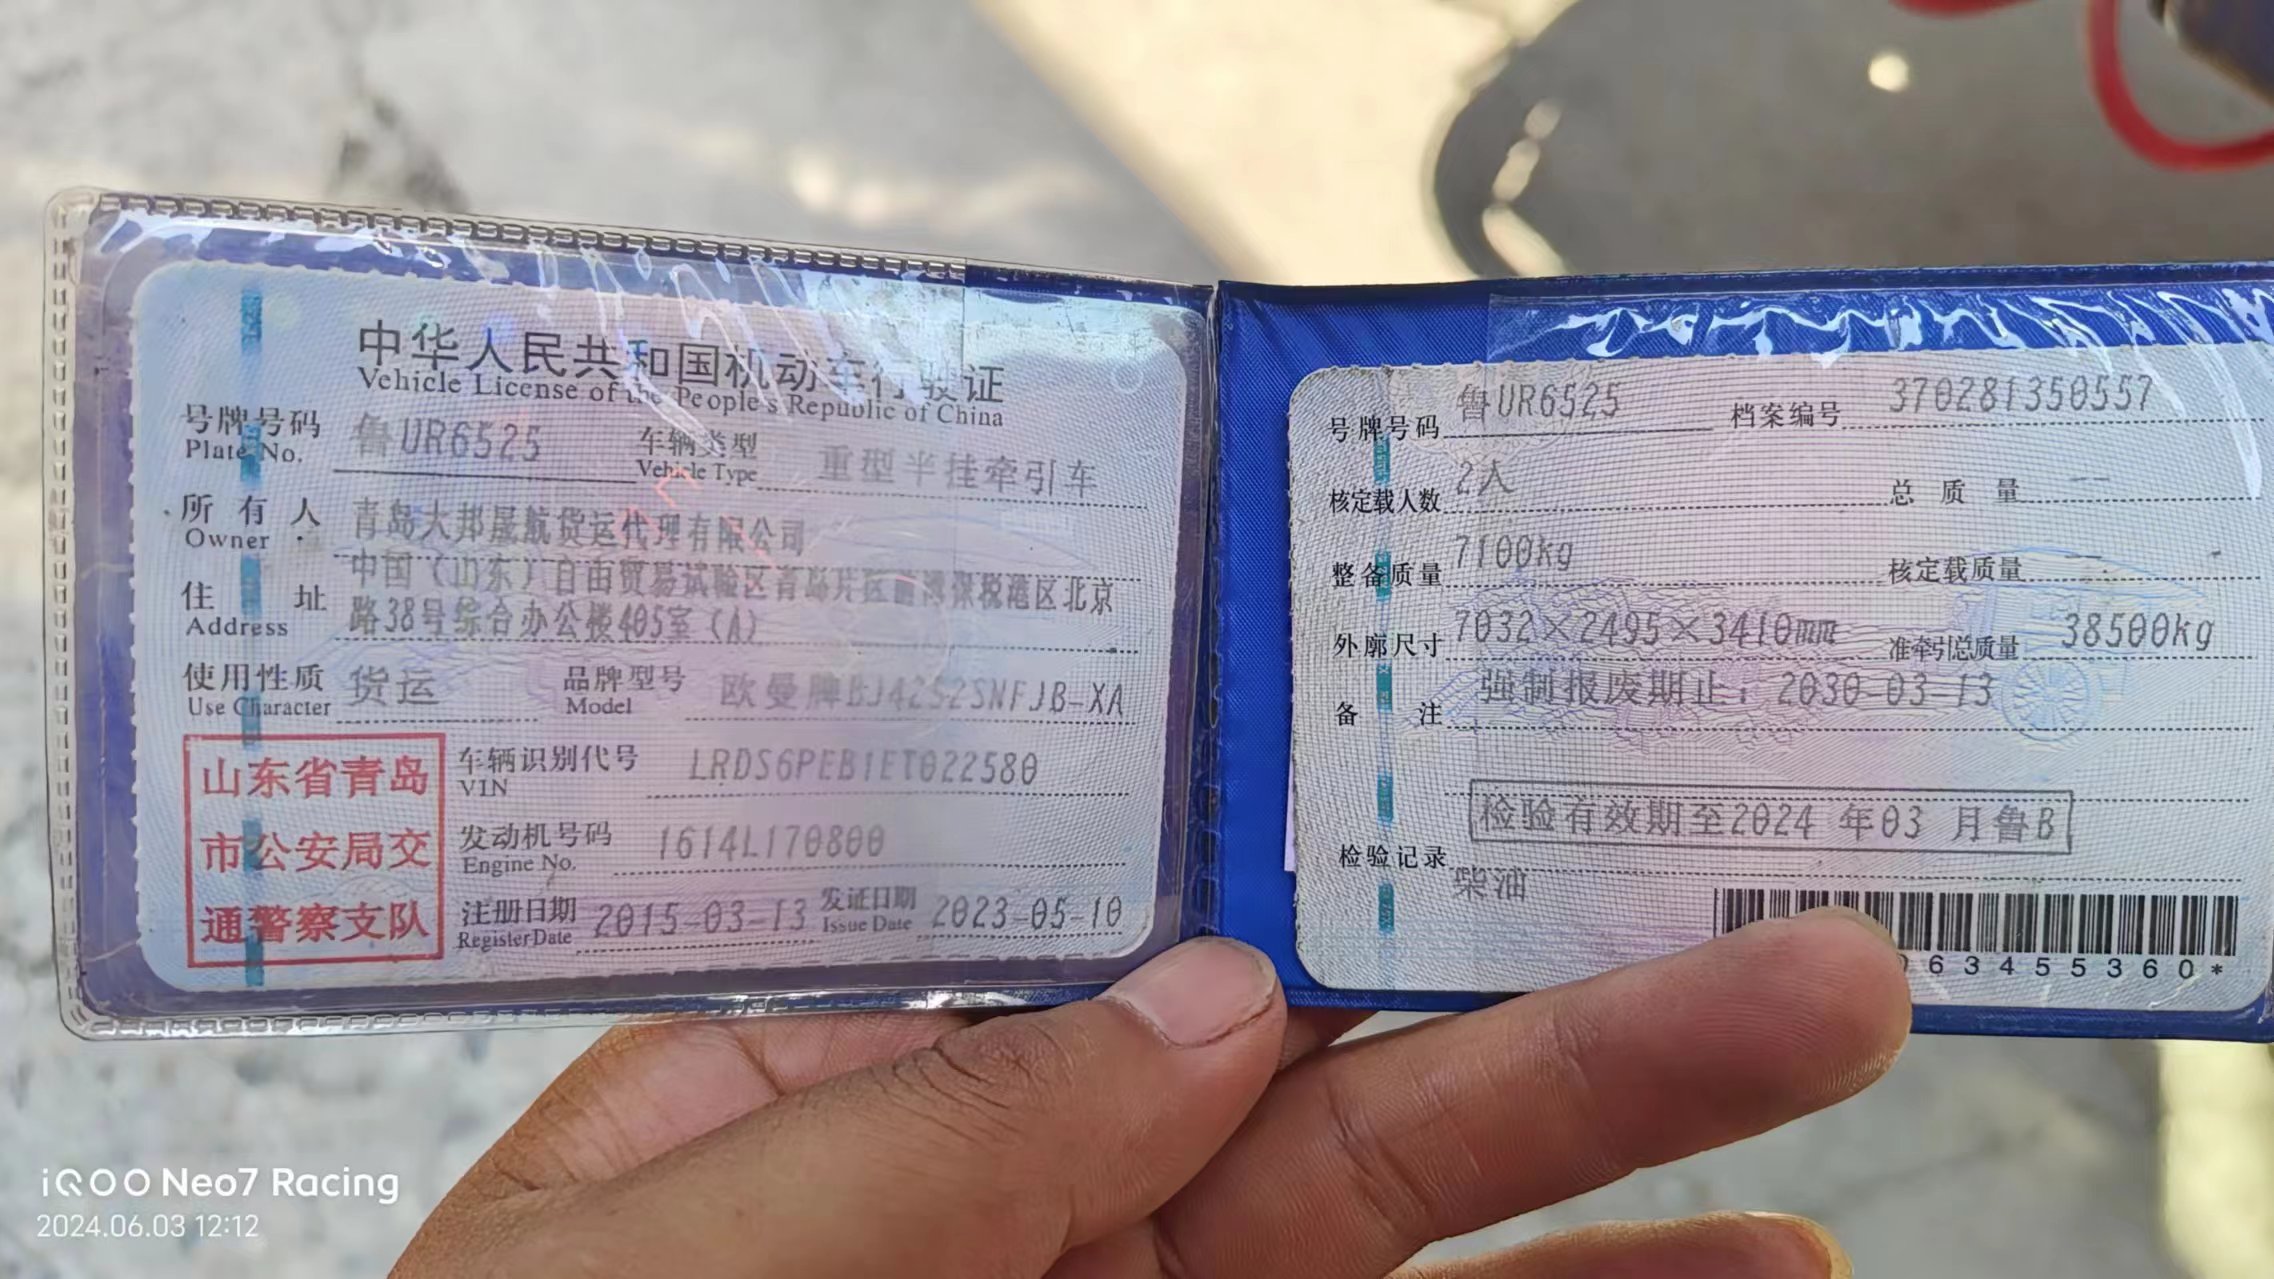 中华人民共和国机动车行驶证
Vehicle License of the People's Republic of China
号牌号码 鲁UR6525 车辆类型 重型半挂牵引车
Plate No. Vehicle Type
所有人 青岛大邦晟航货运代理有限公司
Owner
住址 中国（山东）自由贸易试验区青岛片区前湾保税港区北京
Address 路38号综合办公楼405室（A）
使用性质 货运 品牌型号 欧曼牌BJ4252SNFJB-XA
Use Character Model
山东省青岛
市公安局交
通警察支队
车辆识别代号 LRDS6PEB1ET022580
VIN
发动机号码 1614L170800
Engine No.
注册日期 2015-03-13 发证日期 2023-05-10
Register Date Issue Date
号牌号码 鲁UR6525 档案编号 370281350557
核定载人数 2人 总质量 --
整备质量 7100kg 核定载质量 --
外廓尺寸 7032×2495×3410mm 准牵引总质量 38500kg
备注 强制报废期止：2030-03-13
检验有效期至2024年03月鲁B
检验记录
柴油
63455360*
iQOO Neo7 Racing
2024.06.03 12:12